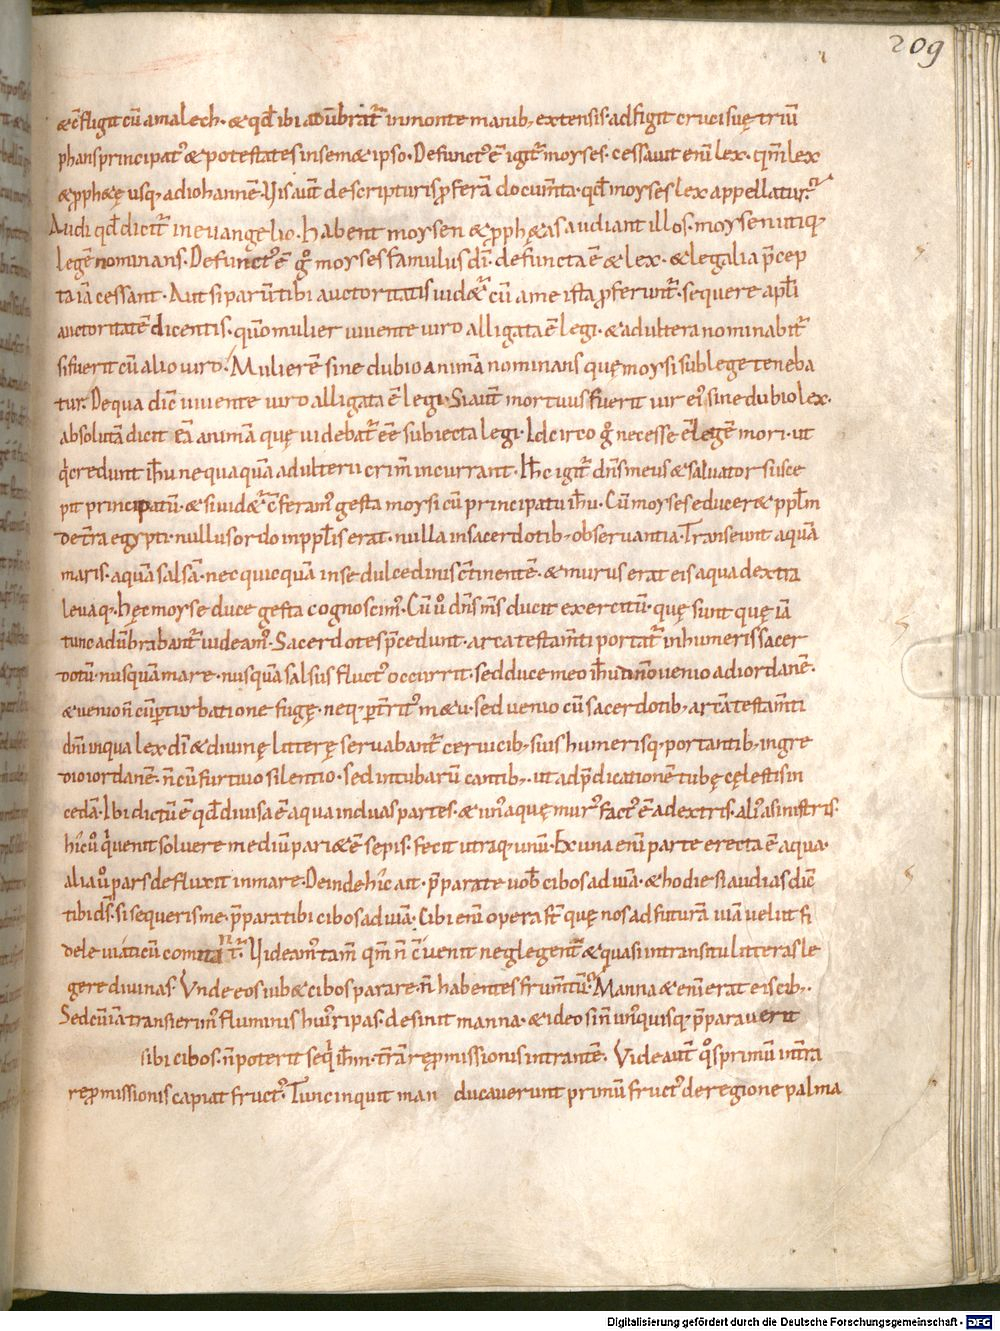 209
&c̄fligit cū amalech· & qd̄ ibi adūbrat᷑ in monte manib; extensis· adfigit crucisuę triū
phans principat᷒ & potestates in sem& ipso· Defunct᷒ ē igit᷑ moyses· cessauit eni lex· qm̄ lex
& ꝓph&ę usq; ad iohannē· Vis aūt de scripturis ꝓferā documta· qd̄ moyses lex appellatur·
Audi qd̄ dicit᷑ in euangelio· habent moysen & ꝓph&as audiant illos· moysen utiq;
legē nominans· Defunct᷒ ē g̊ moyses famulus dī· defuncta ē & lex· & legalia p̄cep
ta iā cessant· Aut si parū tibi auctoritatis uid&᷑ cū a me ista ꝓferunt᷑· sequere apl̄i
auctoritatē dicentis· quō mulier uiuente uiro alligata ē legi· & adultera nominabit᷑
si fuerit cū alio uiro· Mulierē sine dubio animā nominans quę moysi sub lege teneba
tur· De qua dic̄ uiuente uiro alligata ē legi· Si aūt mortuus fuerit uir ei᷒ sine dubio lex·
absolutā dicit eā animā quę uidebat᷑ ēē subiecta legi· Idcirco g̊ necesse ē legē mori· ut
q̇ credunt ih̄u nequaquā adulterii crim̄ incurrant· Ih̄c igit᷑ dn̄s meus & saluator susce
pit principatū· & si uid&᷑ c̄feram᷒ gesta moysi cū principatu ih̄u· Cū moyses educer& ppl̄m
de t̄ra egypti· nullus ordo in ppl̄is erat· nulla in sacerdotib; obseruantia· Transeunt aquā
maris· aquā salsā· nec quicquā in se dulcedinis c̄tinentē· & murus erat eis aqua dextra
leuaq;· hęc moyse duce gesta cognoscim᷒· Cū u̇ dn̄s m̄s ducit exercitū· quę sunt quę iā
tunc adūbrabant᷑ uideam᷒· Sacerdotes p̄cedunt· arca testam̄ti portat᷑ in humeris sacer
dotū· nusquā mare· nusquā salsus fluct᷒ occurrit· sed duce meo ih̄u dn̄o uenio ad iordanē·
& uenio n̄ cū ꝑturbatione fugę· neq; p̄t̄rit᷒ m&u· sed uenio cū sacerdotib; arcā testam̄ti
dn̄i in qua lex dī & diuinę litterę seruabant᷑ ceruicib; suis humerisq; portantib; ingre
dio iordanē· n̄ cū furtiuo silentio· sed in tubarū cantib;· ut ad p̄dicationē tubę cęlestis in
cedā· Ibi dictū ē qd̄ diuisa ē aqua in duas partes· & un᷒ aquę mur᷒ fact᷒ ē a dextris· ali᷒ a sinistris·
hic u̇ q̇ uenit soluere mediū pari&ē sepis· fecit utraq; unū· Ex una eni parte erecta ē aqua·
alia u̇ pars defluxit in mare· Deinde hic ait· p̄parate uob̄ cibos ad uiā· & hodie si audias dic̄
tibi dn̄s· si sequeris me· p̄para tibi cibos ad uiā· Cibi eni opera st̄ quę nos ad futurā uiā uelut fi
dele uiaticū comitan᷑t· Videam᷒ tam̄ qm̄ n̄ c̄uenit neglegent᷑ & quasi in transitu litteras le
gere diuinas· Vnde eos iub& cibos parare· n̄ habentes frum̄tū· Manna & eni erat eis cib;·
Sed cū iā transierim᷒ fluminis hui᷒ ripas· desinit manna· & ideo si n̄ un᷒quisq; p̄parauerit
sibi cibos· n̄ poterit seq̇ ih̄m· t̄rā rep̄missionis intrantē· Vide aūt q̊s primū intra
rep̄missionis capiat fruct᷒· Tunc inquit man ducauerunt primū fruct᷒ de regione palma
Digitalisierung gefördert durch die Deutsche Forschungsgemeinschaft - DFG